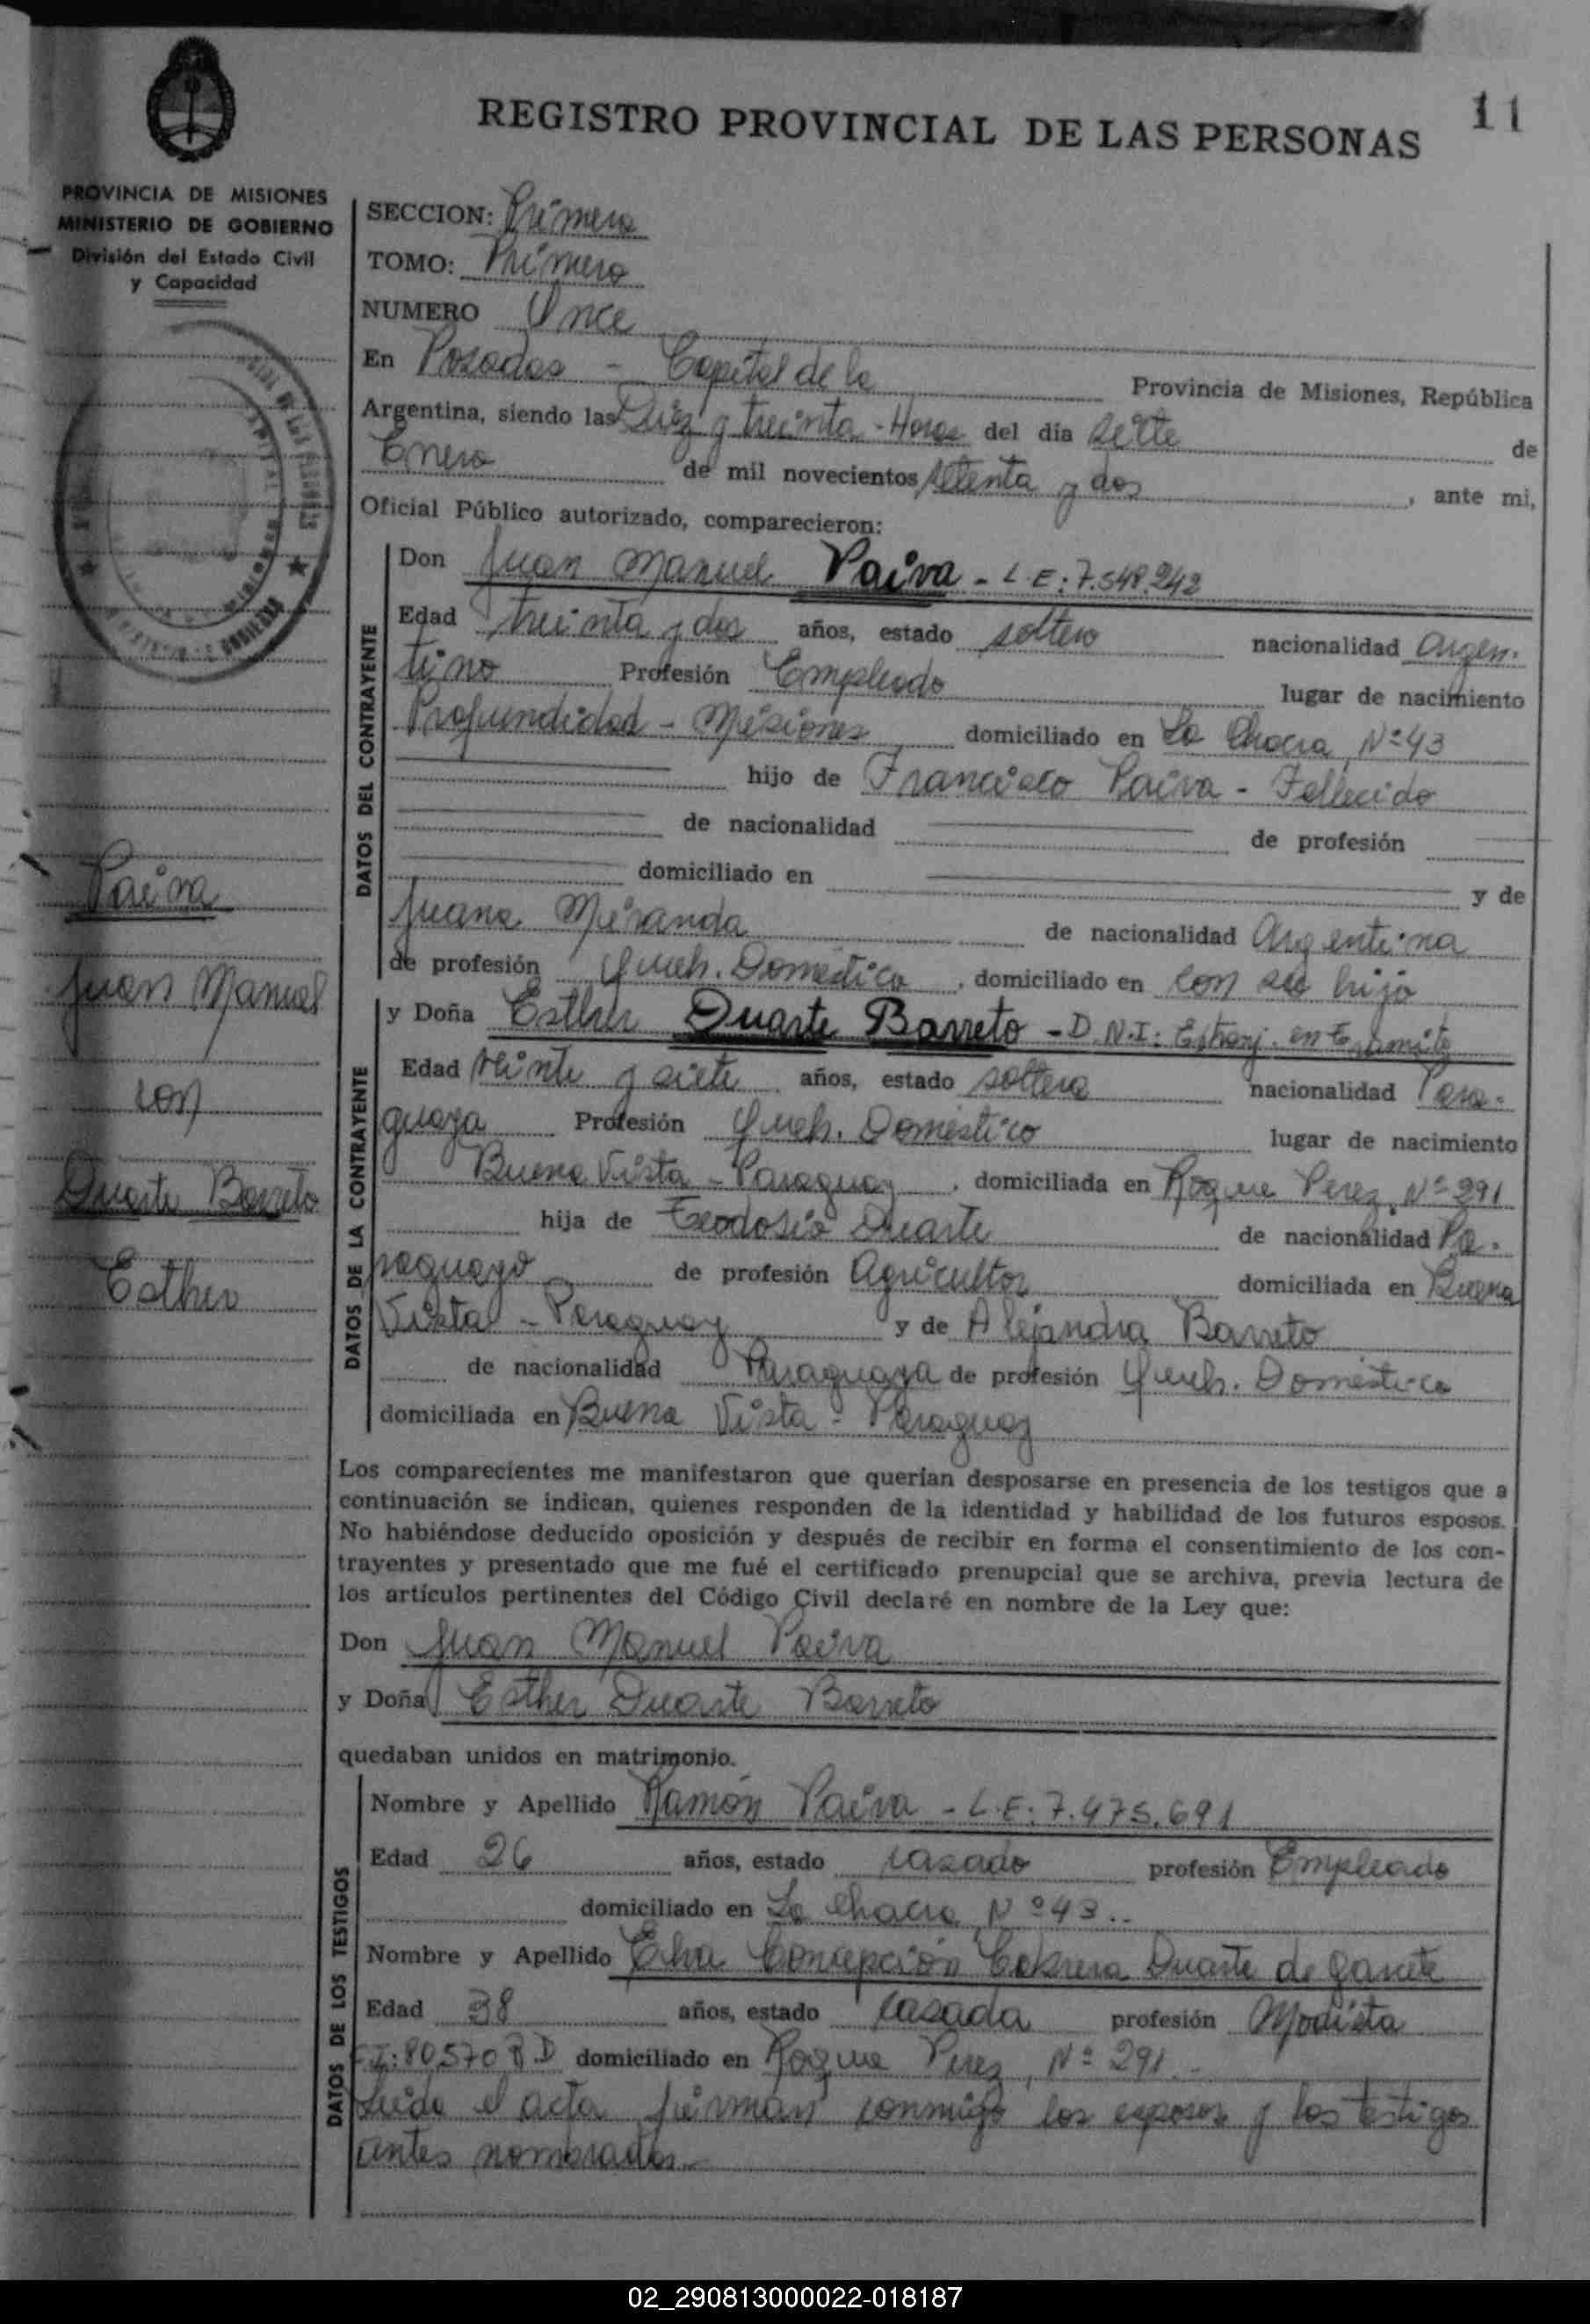 11
REGISTRO PROVINCIAL DE LAS PERSONAS
PROVINCIA DE MISIONES
MINISTERIO DE GOBIERNO
División del Estado Civil
y Capacidad
SECCION: Primera
TOMO: Primero
NUMERO Once
En Posadas - Capital de la Provincia de Misiones, República
Argentina, siendo las Diez y treinta - Horas del día siete de
Enero de mil novecientos setenta y dos, ante mi,
Oficial Público autorizado, comparecieron:
DATOS DEL CONTRAYENTE
Don Juan Manuel Paiva - L.E: 7.548.242
Edad treinta y dos años, estado soltero nacionalidad Argen-
tino Profesión Empleado lugar de nacimiento
Profundidad - Misiones domiciliado en La Chacra Nº 43
hijo de Francisco Paiva - Fallecido
de nacionalidad de profesión
domiciliado en y de
Juana Miranda de nacionalidad Argentina
de profesión Queh. Domestico, domiciliado en con su hijo
Paiva
Juan Manuel
con
Duarte Barreto
Esther
DATOS DE LA CONTRAYENTE
y Doña Esther Duarte Barreto - D.N.I: Extranj. en trámite
Edad Veinte y siete años, estado soltera nacionalidad Para-
guaya Profesión Queh. Domestico lugar de nacimiento
Buena Vista - Paraguay, domiciliada en Roque Perez, Nº 291
hija de Teodosio Duarte de nacionalidad Pa-
raguayo de profesión Agricultor domiciliada en Buena
Vista - Paraguay y de Alejandra Barreto
de nacionalidad Paraguaya de profesión Queh. Domestico
domiciliada en Buena Vista - Paraguay
Los comparecientes me manifestaron que querían desposarse en presencia de los testigos que a
continuación se indican, quienes responden de la identidad y habilidad de los futuros esposos.
No habiéndose deducido oposición y después de recibir en forma el consentimiento de los con-
trayentes y presentado que me fué el certificado prenupcial que se archiva, previa lectura de
los artículos pertinentes del Código Civil declaré en nombre de la Ley que:
Don Juan Manuel Paiva
y Doña Esther Duarte Barreto
quedaban unidos en matrimonio.
DATOS DE LOS TESTIGOS
Nombre y Apellido Ramón Paiva - L.E: 7.475.691
Edad 26 años, estado casado profesión Empleado
domiciliado en La Chacra Nº 43.-
Nombre y Apellido Concepción Cabrera Duarte de
Edad 38 años, estado casada profesión Modista
domiciliado en Roque Perez, Nº 291.-
Leida el acta firman conmigo los esposos y los testigos
antes nombrados.-
02_290813000022-018187